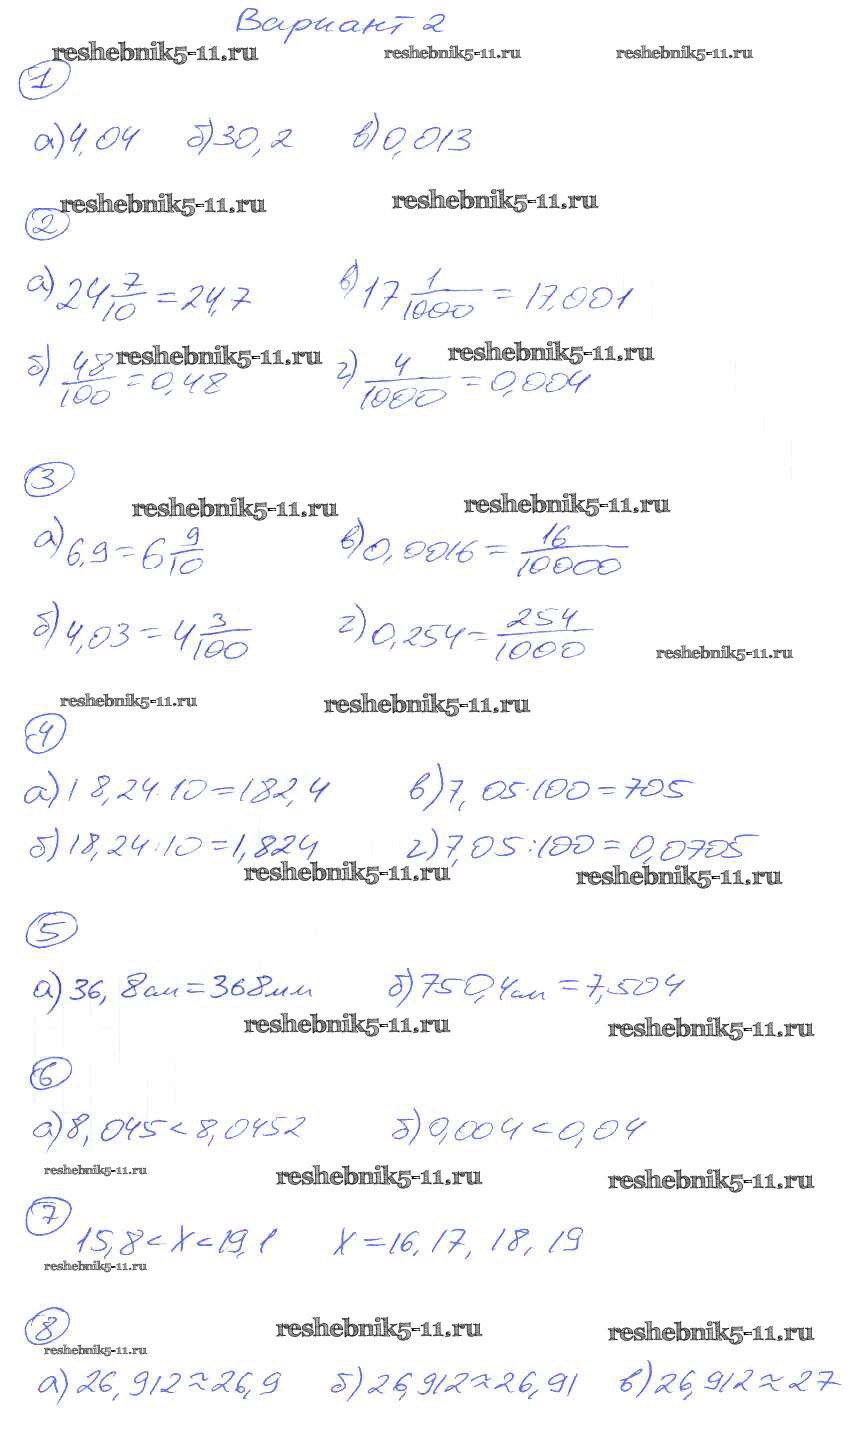 Вариант 2
reshebnik5-11.ru reshebnik5-11.ru reshebnik5-11.ru
1
а) 4,04 б) 30,2 в) 0,013
reshebnik5-11.ru reshebnik5-11.ru
2
а) 24 7/10 = 24,7 в) 17 1/1000 = 17,001
reshebnik5-11.ru reshebnik5-11.ru
б) 48/100 = 0,48 г) 4/1000 = 0,004
3
reshebnik5-11.ru reshebnik5-11.ru
а) 6,9 = 6 9/10 в) 0,0016 = 16/10000
б) 4,03 = 4 3/100 г) 0,254 = 254/1000
reshebnik5-11.ru
reshebnik5-11.ru reshebnik5-11.ru
4
а) 18,24·10 = 182,4 в) 7,05·100 = 705
б) 18,24:10 = 1,824 г) 7,05:100 = 0,0705
reshebnik5-11.ru reshebnik5-11.ru
5
а) 36,8см = 368мм б) 750,4см = 7,504
reshebnik5-11.ru reshebnik5-11.ru
6
а) 8,045 < 8,0452 б) 0,004 < 0,04
reshebnik5-11.ru reshebnik5-11.ru reshebnik5-11.ru
7
15,8 < x < 19,1 x = 16, 17, 18, 19
reshebnik5-11.ru
8
reshebnik5-11.ru reshebnik5-11.ru
reshebnik5-11.ru
а) 26,912 ≈ 26,9 б) 26,912 ≈ 26,91 в) 26,912 ≈ 27